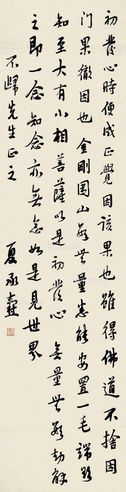 初发心時便成正覺因該果也雖得佛道不捨因
門果徹因也金剛圍山無量悉能安置一毛端欲
知至大有小相菩薩以是初發心無量無數劫解
之即一念知念亦無念如是見世界
不歸先生正之
夏承燾